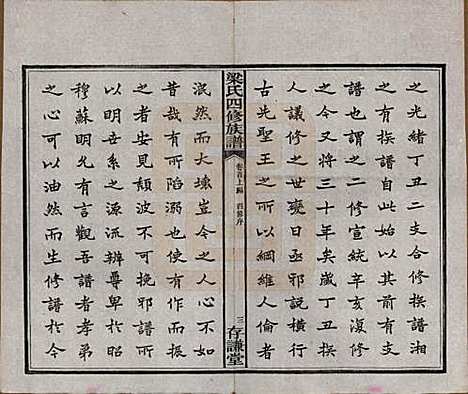 之光緒丁丑二支合修族譜湘
之有族譜自此始以其前有支
譜也謂之二修宣統辛亥復修
之今又將三十年矣歲丁丑族
人議修之世變日亟邪說橫行
古先聖王之所以綱維人倫者
梁氏四修族譜
卷首上編
四修序
三
存謙堂
泯然而大壞豈今之人心不如
昔哉有所陷溺也使有作而振
之者安見頹波不可挽邪譜所
以明吾系之源流辨尊卑於昭
穆蘇明允有言觀吾譜者孝弟
之心可以油然而生修譜於今